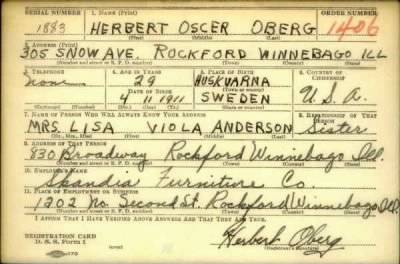 SERIAL NUMBER 1. NAME (Print) ORDER NUMBER
1883 HERBERT OSCER OBERG 1406
(First) (Middle) (Last)
2. ADDRESS (Print)
305 SNOW AVE. ROCKFORD WINNEBAGO ILL
(Number and street or R. F. D. number) (Town) (County) (State)
3. TELEPHONE 4. AGE IN YEARS 5. PLACE OF BIRTH 6. COUNTRY OF CITIZENSHIP
none 29 HUSKVARNA
DATE OF BIRTH
4 11 1911 SWEDEN U.S.A.
(Mo.) (Day) (Yr.)
7. NAME OF PERSON WHO WILL ALWAYS KNOW YOUR ADDRESS 8. RELATIONSHIP OF THAT PERSON
MRS. LISA VIOLA ANDERSON Sister
(Mr., Mrs., Miss) (First) (Middle) (Last)
9. ADDRESS OF THAT PERSON
830 Broadway Rockford Winnebago Ill.
(Number and street or R. F. D. number) (Town) (County) (State)
10. EMPLOYER'S NAME
Skandia Furniture Co.
11. PLACE OF EMPLOYMENT OR BUSINESS
1202 No. Second St. Rockford Winnebago Ill.
(Number and street or R. F. D. number) (Town) (County) (State)
I AFFIRM THAT I HAVE VERIFIED ABOVE ANSWERS AND THAT THEY ARE TRUE.
REGISTRATION CARD
D. S. S. Form 1 Herbert Oberg
(Registrant's signature)